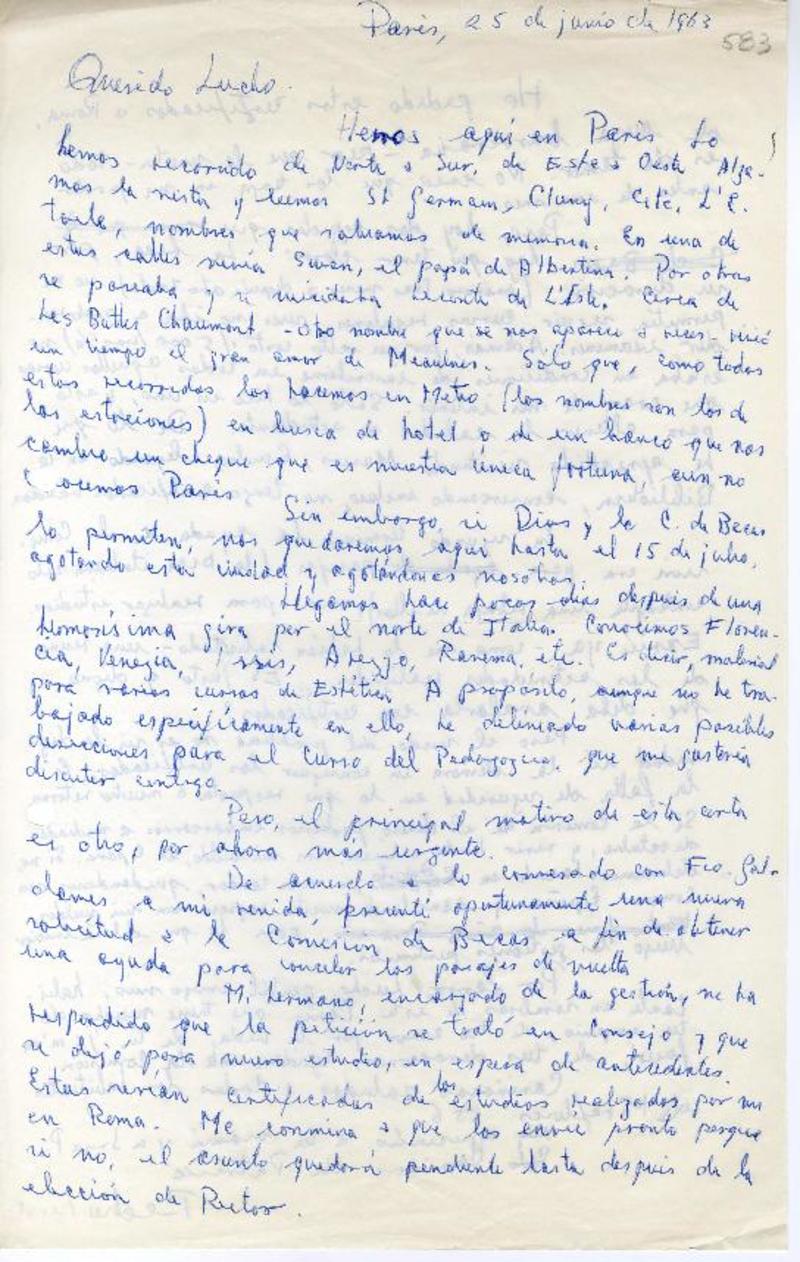 Paris, 25 de junio de 1963
583
Querido Lucho.
Henos aquí en Paris Lo
hemos recorrido de Norte a Sur, de Este a Oeste Alza-
mos la vista y leemos St Germain, Cluny, Cité, L'E-
toile, nombres que sabíamos de memoria. En una de
estas calles vivía Swan, el papá de Albertina. Por otras
se paseaba y se suicidaba Leconte de L'Isle. Cerca de
Les Buttes Chaumont -otro nombre que se nos aparece a veces- vivió
un tiempo el gran amor de Meaulnes. Solo que, como todos
estos recorridos los hacemos en Metro (los nombres son los de
las estaciones) en busca de hotel o de un banco que nos
cambie un cheque que es nuestra única fortuna, aun no
conocemos Paris
Sin embargo, si Dios y la C. de Becas
lo permiten, nos quedaremos aquí hasta el 15 de julio,
agotando esta ciudad y agotándonos nosotros.
Llegamos hace pocos días después de una
hermosísima gira por el norte de Italia. Conocimos Floren-
cia, Venezia, Assis, Arezzo, Ravenna, etc. Es decir, material
para varios cursos de Estética. A propósito, aunque no he tra-
bajado específicamente en ello, he delineado varias posibles
direcciones para el Curso del Pedagógico, que me gustaría
discutir contigo.
Pero, el principal motivo de esta carta
es otro, por ahora más urgente.
De acuerdo a lo conversado con Fco. Gal-
dames a mi venida, presenté oportunamente una nueva
solicitud a la Comisión de Becas a fin de obtener
una ayuda para cancelar los pasajes de vuelta
Mi hermano, encargado de la gestión, me ha
respondido que la petición se trató en Consejo y que
se dejó para nuevo estudio, en espera de antecedentes.
Estos serían certificados de los estudios realizados por mi
en Roma. Me conmina a que los envíe pronto porque
si no, el asunto quedará pendiente hasta después de la
elección de Rector.